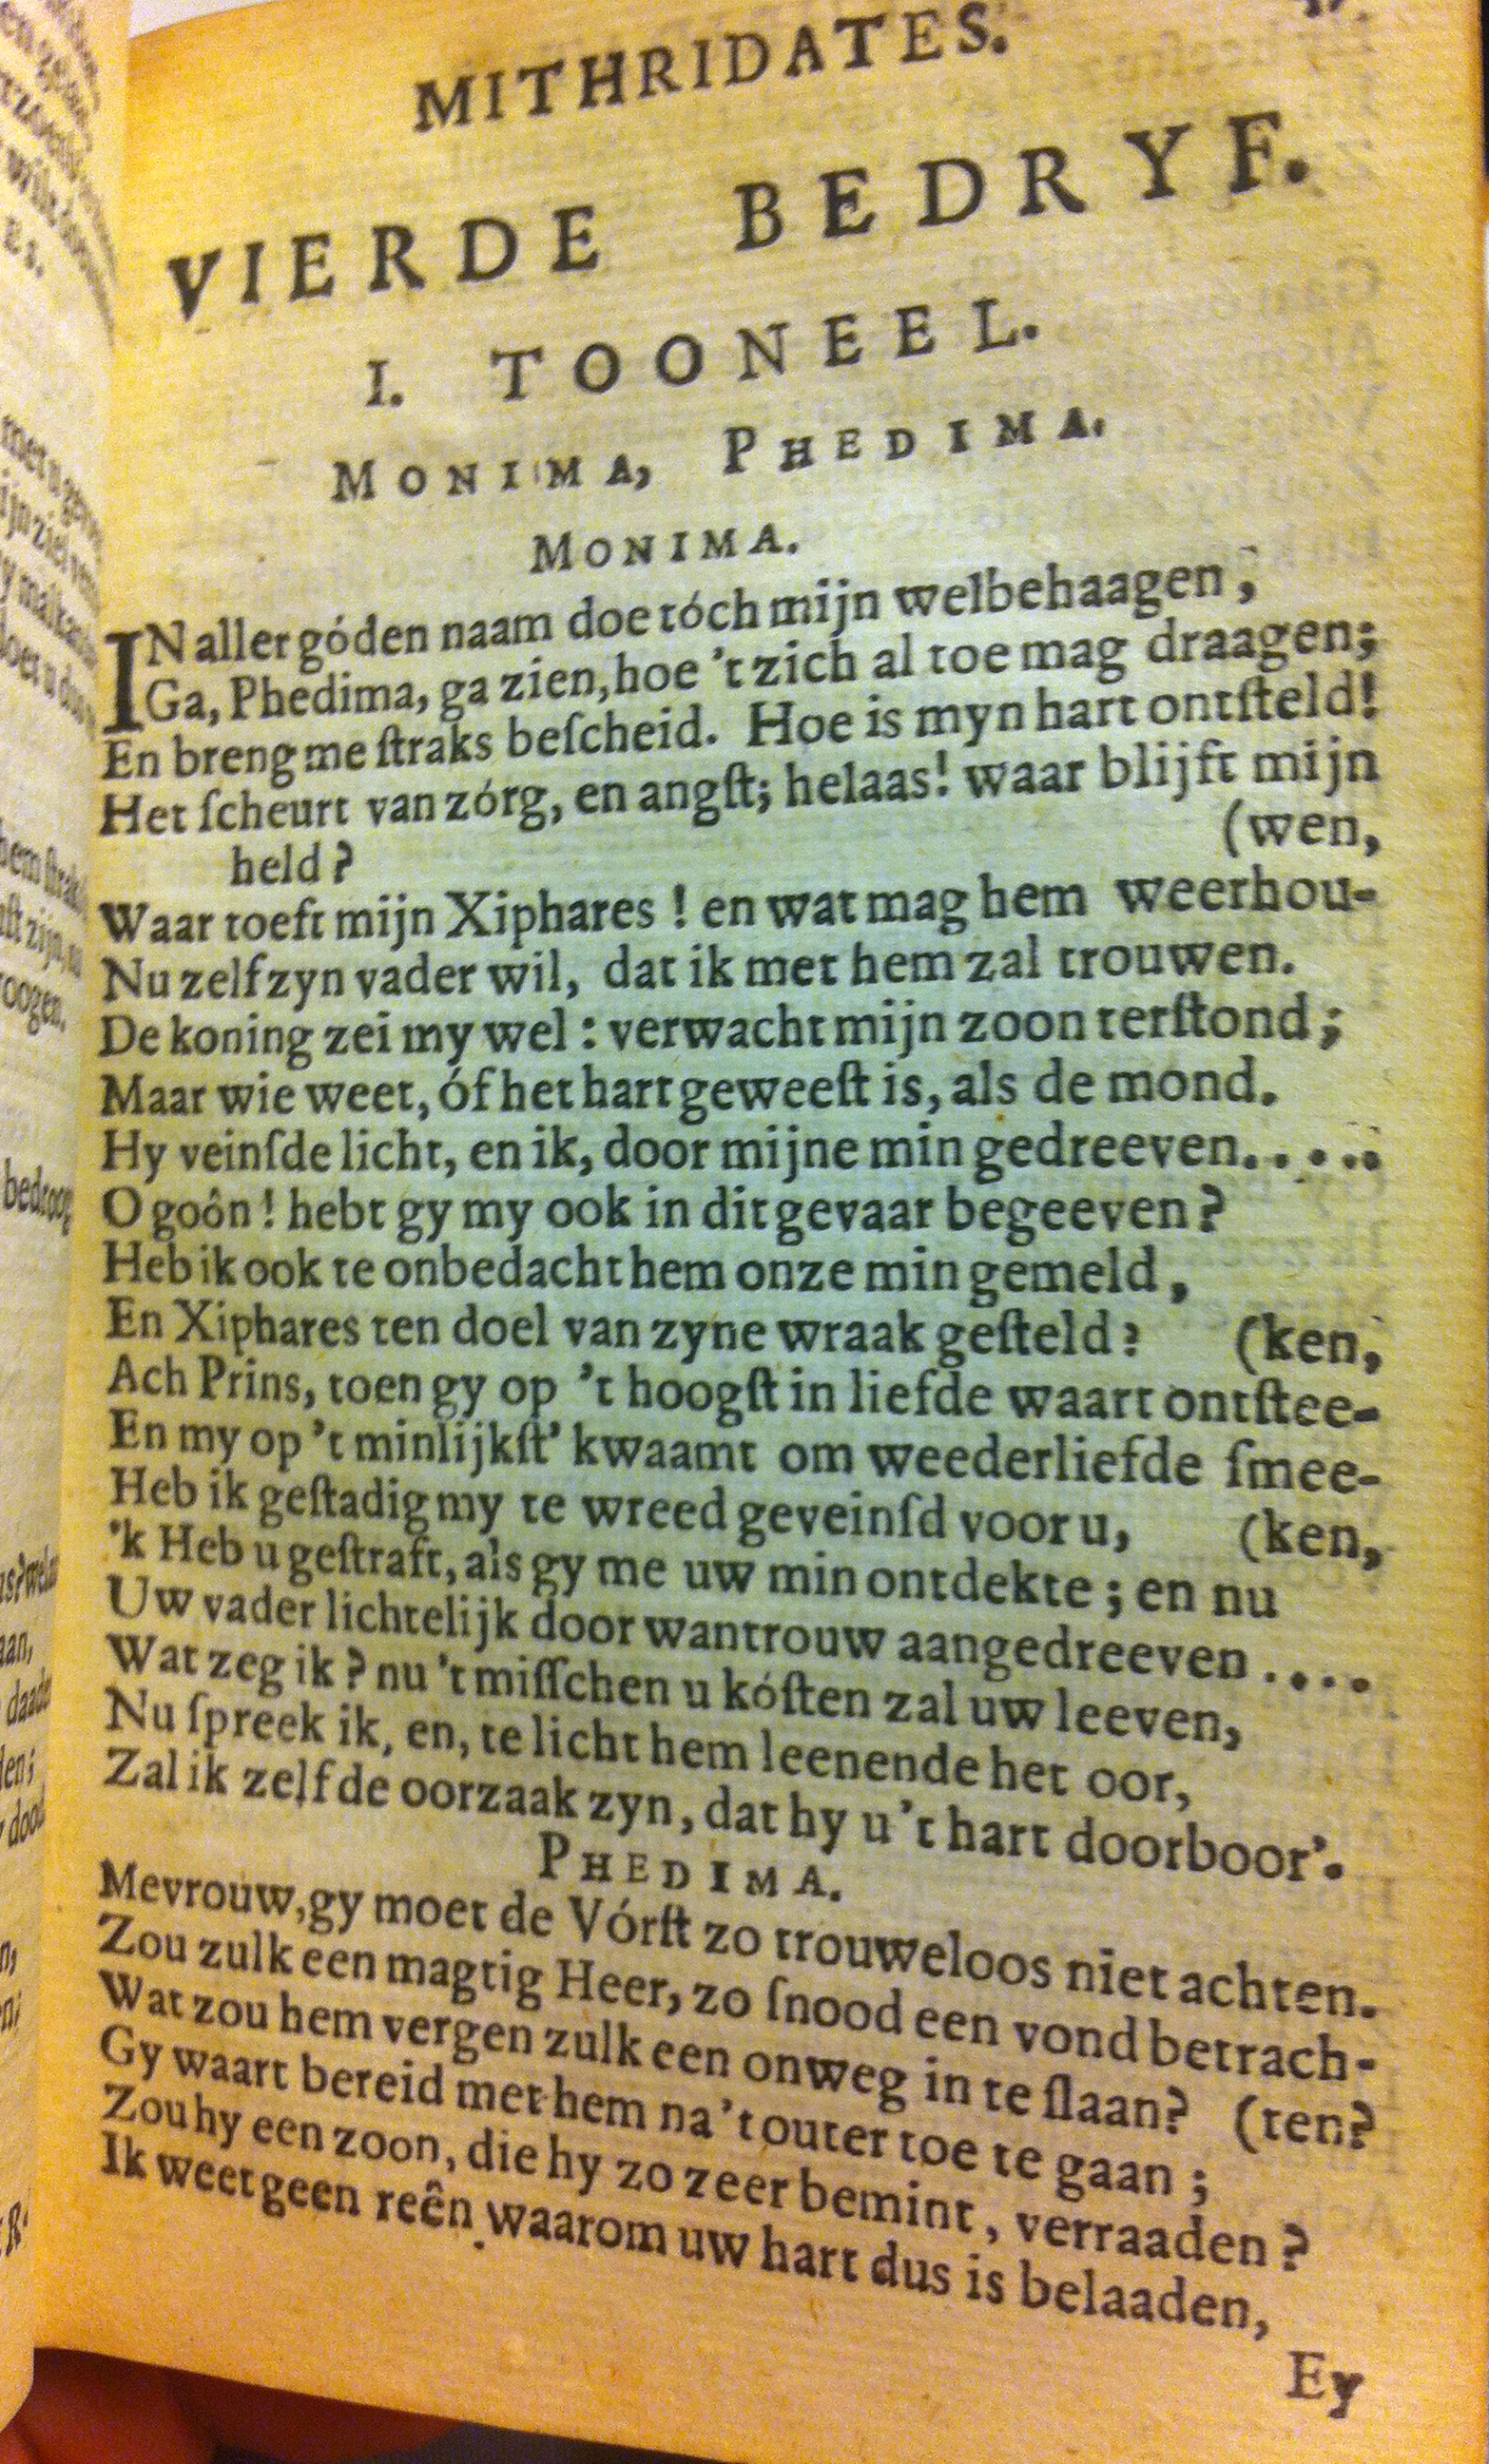 MITHRIDATES.
VIERDE BEDRYF.
I. TOONEEL.
MONIMA, PHEDIMA.
MONIMA.
IN aller góden naam doe tóch mijn welbehaagen,
Ga, Phedima, ga zien, hoe 't zich al toe mag draagen;
En breng me ſtraks beſcheid. Hoe is myn hart ontſteld!
Het ſcheurt van zórg, en angſt; helaas! waar blijft mijn
held? (wen,
Waar toeft mijn Xiphares! en wat mag hem weerhou-
Nu zelf zyn vader wil, dat ik met hem zal trouwen.
De koning zei my wel: verwacht mijn zoon terſtond;
Maar wie weet, óf het hart geweeſt is, als de mond.
Hy veinſde licht, en ik, door mijne min gedreeven.....
O goôn! hebt gy my ook in dit gevaar begeeven?
Heb ik ook te onbedacht hem onze min gemeld,
En Xiphares ten doel van zyne wraak geſteld? (ken,
Ach Prins, toen gy op 't hoogſt in liefde waart ontſtee-
En my op 't minlijkſt' kwaamt om weederliefde ſmee-
Heb ik geſtadig my te wreed geveinſd voor u, (ken,
'k Heb u geſtraft, als gy me uw min ontdekte; en nu
Uw vader lichtelijk door wantrouw aangedreeven....
Wat zeg ik? nu 't miſſchen u kóſten zal uw leeven,
Nu ſpreek ik, en, te licht hem leenende het oor,
Zal ik zelf de oorzaak zyn, dat hy u 't hart doorboor'.
PHEDIMA.
Mevrouw, gy moet de Vórſt zo trouweloos niet achten.
Zou zulk een magtig Heer, zo ſnood een vond betrach-
Wat zou hem vergen zulk een onweg in te ſlaan? (ten?
Gy waart bereid met hem na 't outer toe te gaan;
Zou hy een zoon, die hy zo zeer bemint, verraaden?
Ik weet geen reên waarom uw hart dus is belaaden,
Ey